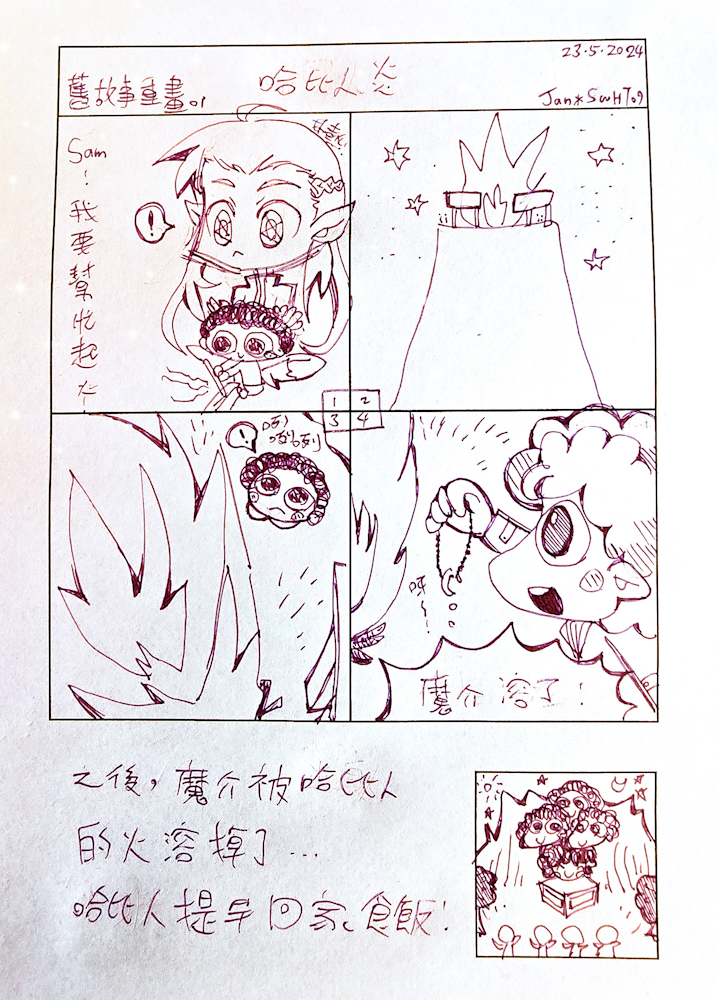 23.5.2024
舊故事重畫.01
哈比人炎
Jan*SwHT09
Sam
！我要幫忙起火~
!
1 2
3 4
!
呀~~!
魔介溶了！
之後，魔介被哈比人
的火溶掉了...
哈比人提早回家食飯！